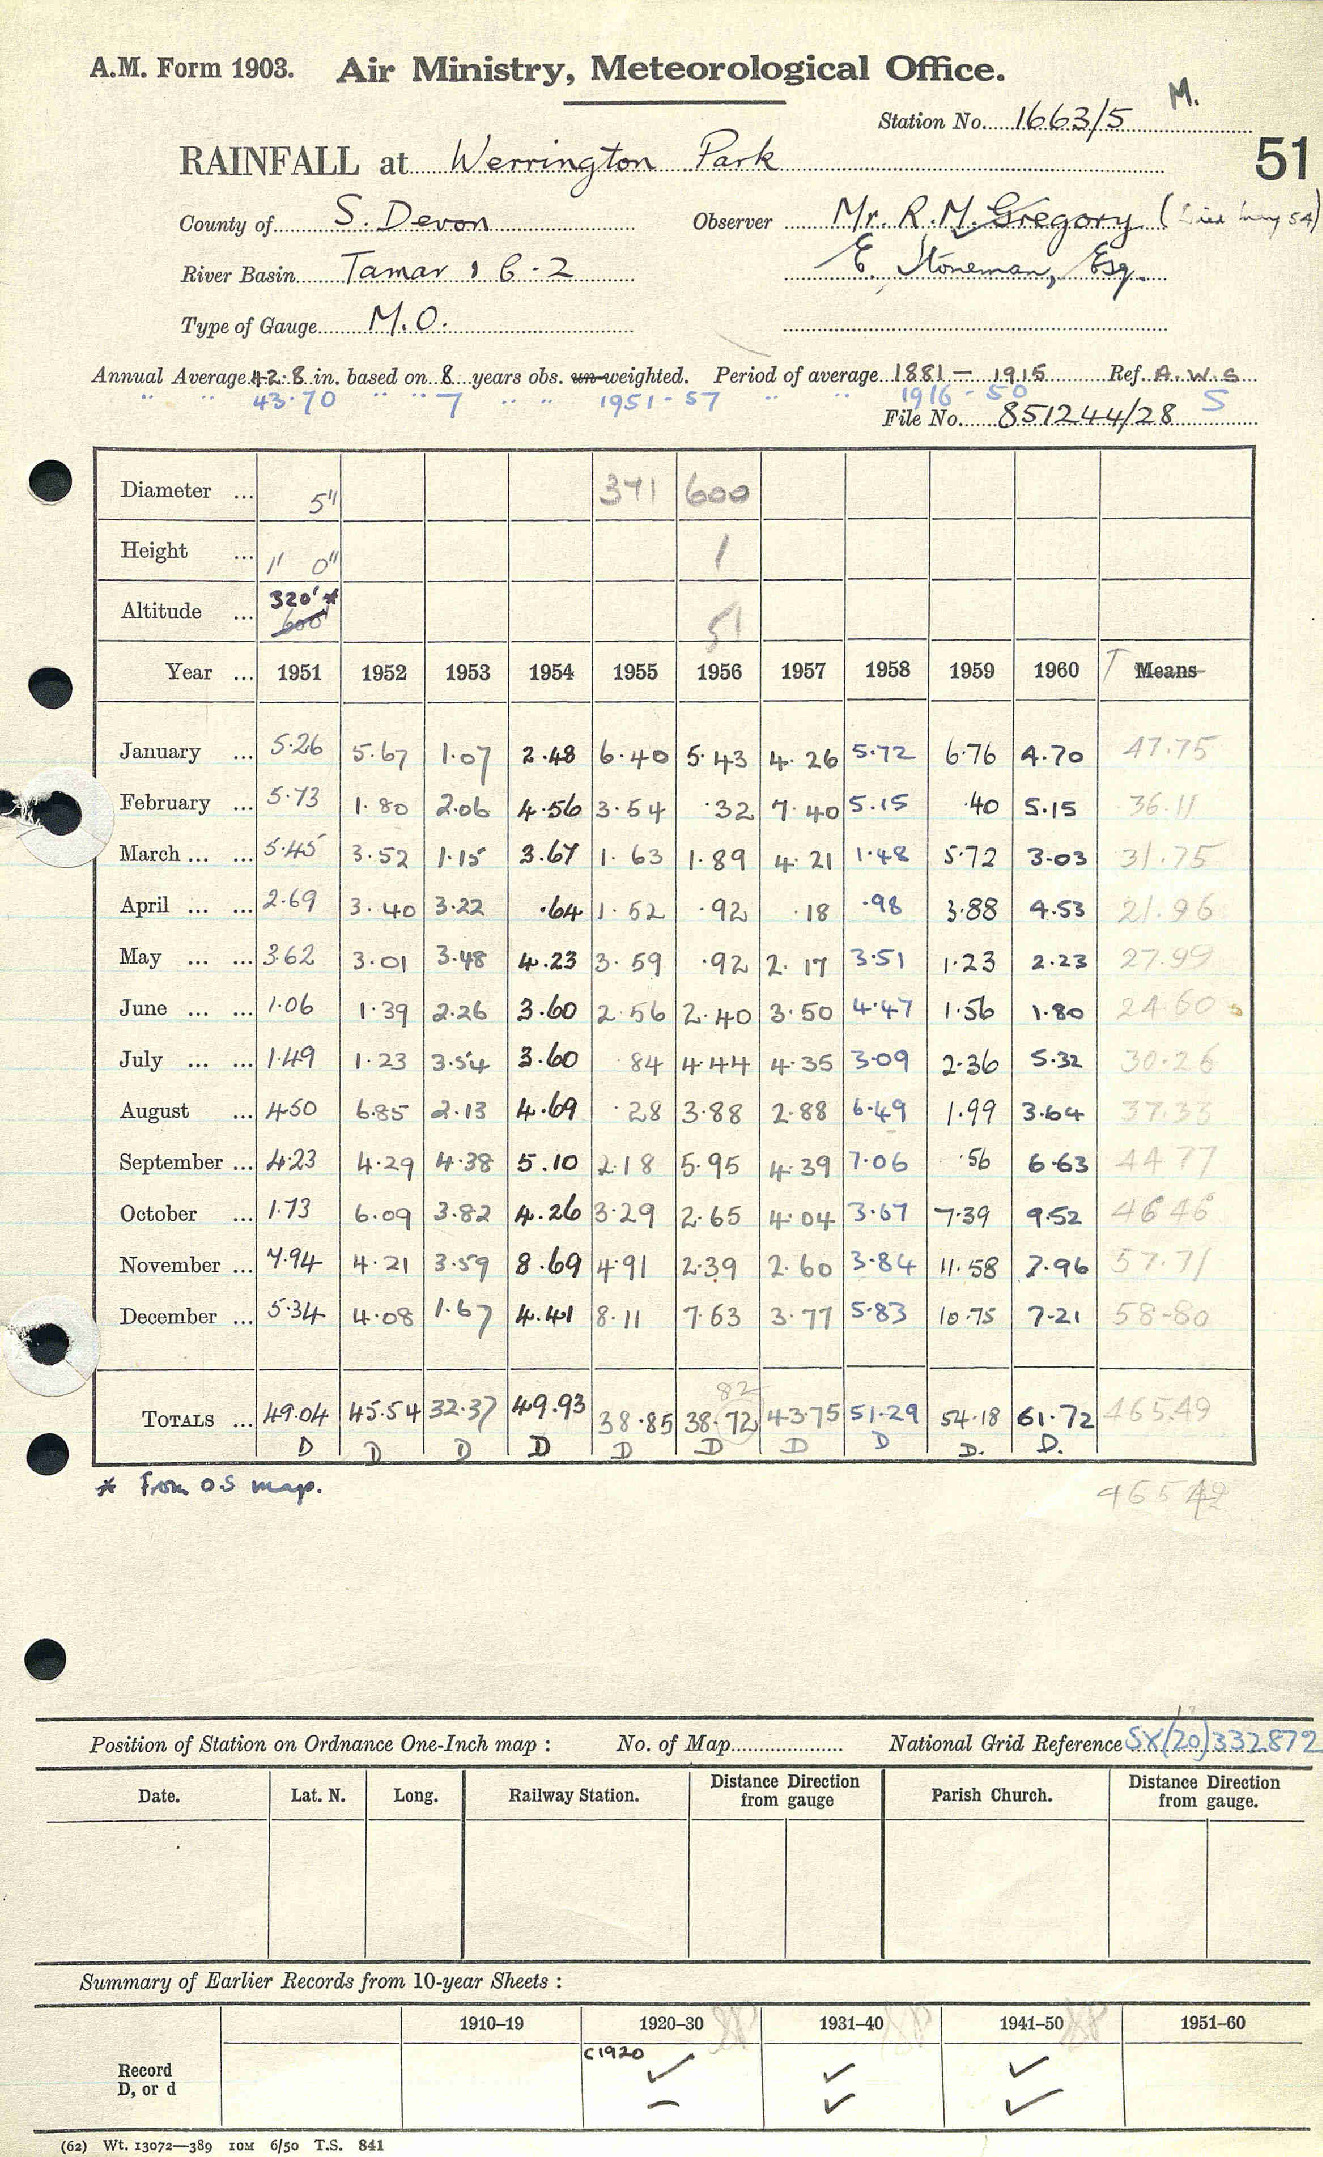 A.M. Form 1903. Air Ministry, Meteorological Office.
M.
Station No. 1663/5
RAINFALL at Werrington Park
51
County of S. Devon Observer Mr. R. M. Gregory (Died May 54)
River Basin Tamar 1 6-2 E. Stoneman, Esq.
Type of Gauge M.O.
Annual Average 42.8 in. based on 8 years obs. un-weighted. Period of average 1881 - 1915 Ref. A.W.S
" " 43.70 " " 7 " " 1951-57 " " 1916-50 S
File No. 851244/28
Diameter ... 5" 371 600
Height ... 1' 0" 1
Altitude ... 320' * 600' 51
Year ... 1951 1952 1953 1954 1955 1956 1957 1958 1959 1960 T Means
January ... 5.26 5.67 1.07 2.48 6.40 5.43 4.26 5.72 6.76 4.70 47.75
February ... 5.73 1.80 2.06 4.56 3.54 .32 7.40 5.15 .40 5.15 36.11
March ... ... 5.45 3.52 1.15 3.67 1.63 1.89 4.21 1.48 5.72 3.03 31.75
April ... ... 2.69 3.40 3.22 .64 1.52 .92 .18 .98 3.88 4.53 21.96
May ... ... 3.62 3.01 3.48 4.23 3.59 .92 2.17 3.51 1.23 2.23 27.99
June ... ... 1.06 1.39 2.26 3.60 2.56 2.40 3.50 4.47 1.56 1.80 24.60
July ... ... 1.49 1.23 3.54 3.60 .84 4.44 4.35 3.09 2.36 5.32 30.26
August ... 4.50 6.85 2.13 4.69 .28 3.88 2.88 6.49 1.99 3.64 37.33
September ... 4.23 4.29 4.38 5.10 2.18 5.95 4.39 7.06 .56 6.63 44.77
October ... 1.73 6.09 3.82 4.26 3.29 2.65 4.04 3.67 7.39 9.52 46.46
November ... 7.94 4.21 3.59 8.69 4.91 2.39 2.60 3.84 11.58 7.96 57.71
December ... 5.34 4.08 1.67 4.41 8.11 7.63 3.77 5.83 10.75 7.21 58.80
82
TOTALS ... 49.04 45.54 32.37 49.93 38.85 38.72 43.75 51.29 54.18 61.72 465.49
D D D D D D D D D. D.
* From O.S map.
Position of Station on Ordnance One-Inch map : No. of Map National Grid Reference SX(20)332872
Date. Lat. N. Long. Railway Station. Distance Direction from gauge Parish Church. Distance Direction from gauge.
Summary of Earlier Records from 10-year Sheets :
1910-19 1920-30 1931-40 1941-50 1951-60
c1920
Record
D, or d
(62) Wt. 13072—389 10M 6/50 T.S. 841